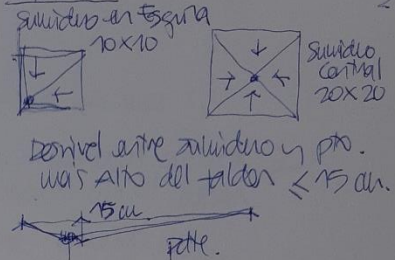 Sumidero en Esquina
10x10
Sumidero
Central
20x20
Desnivel entre sumidero y pto.
más Alto del faldón ≤ 15 cm.
15 cm.
pdte.